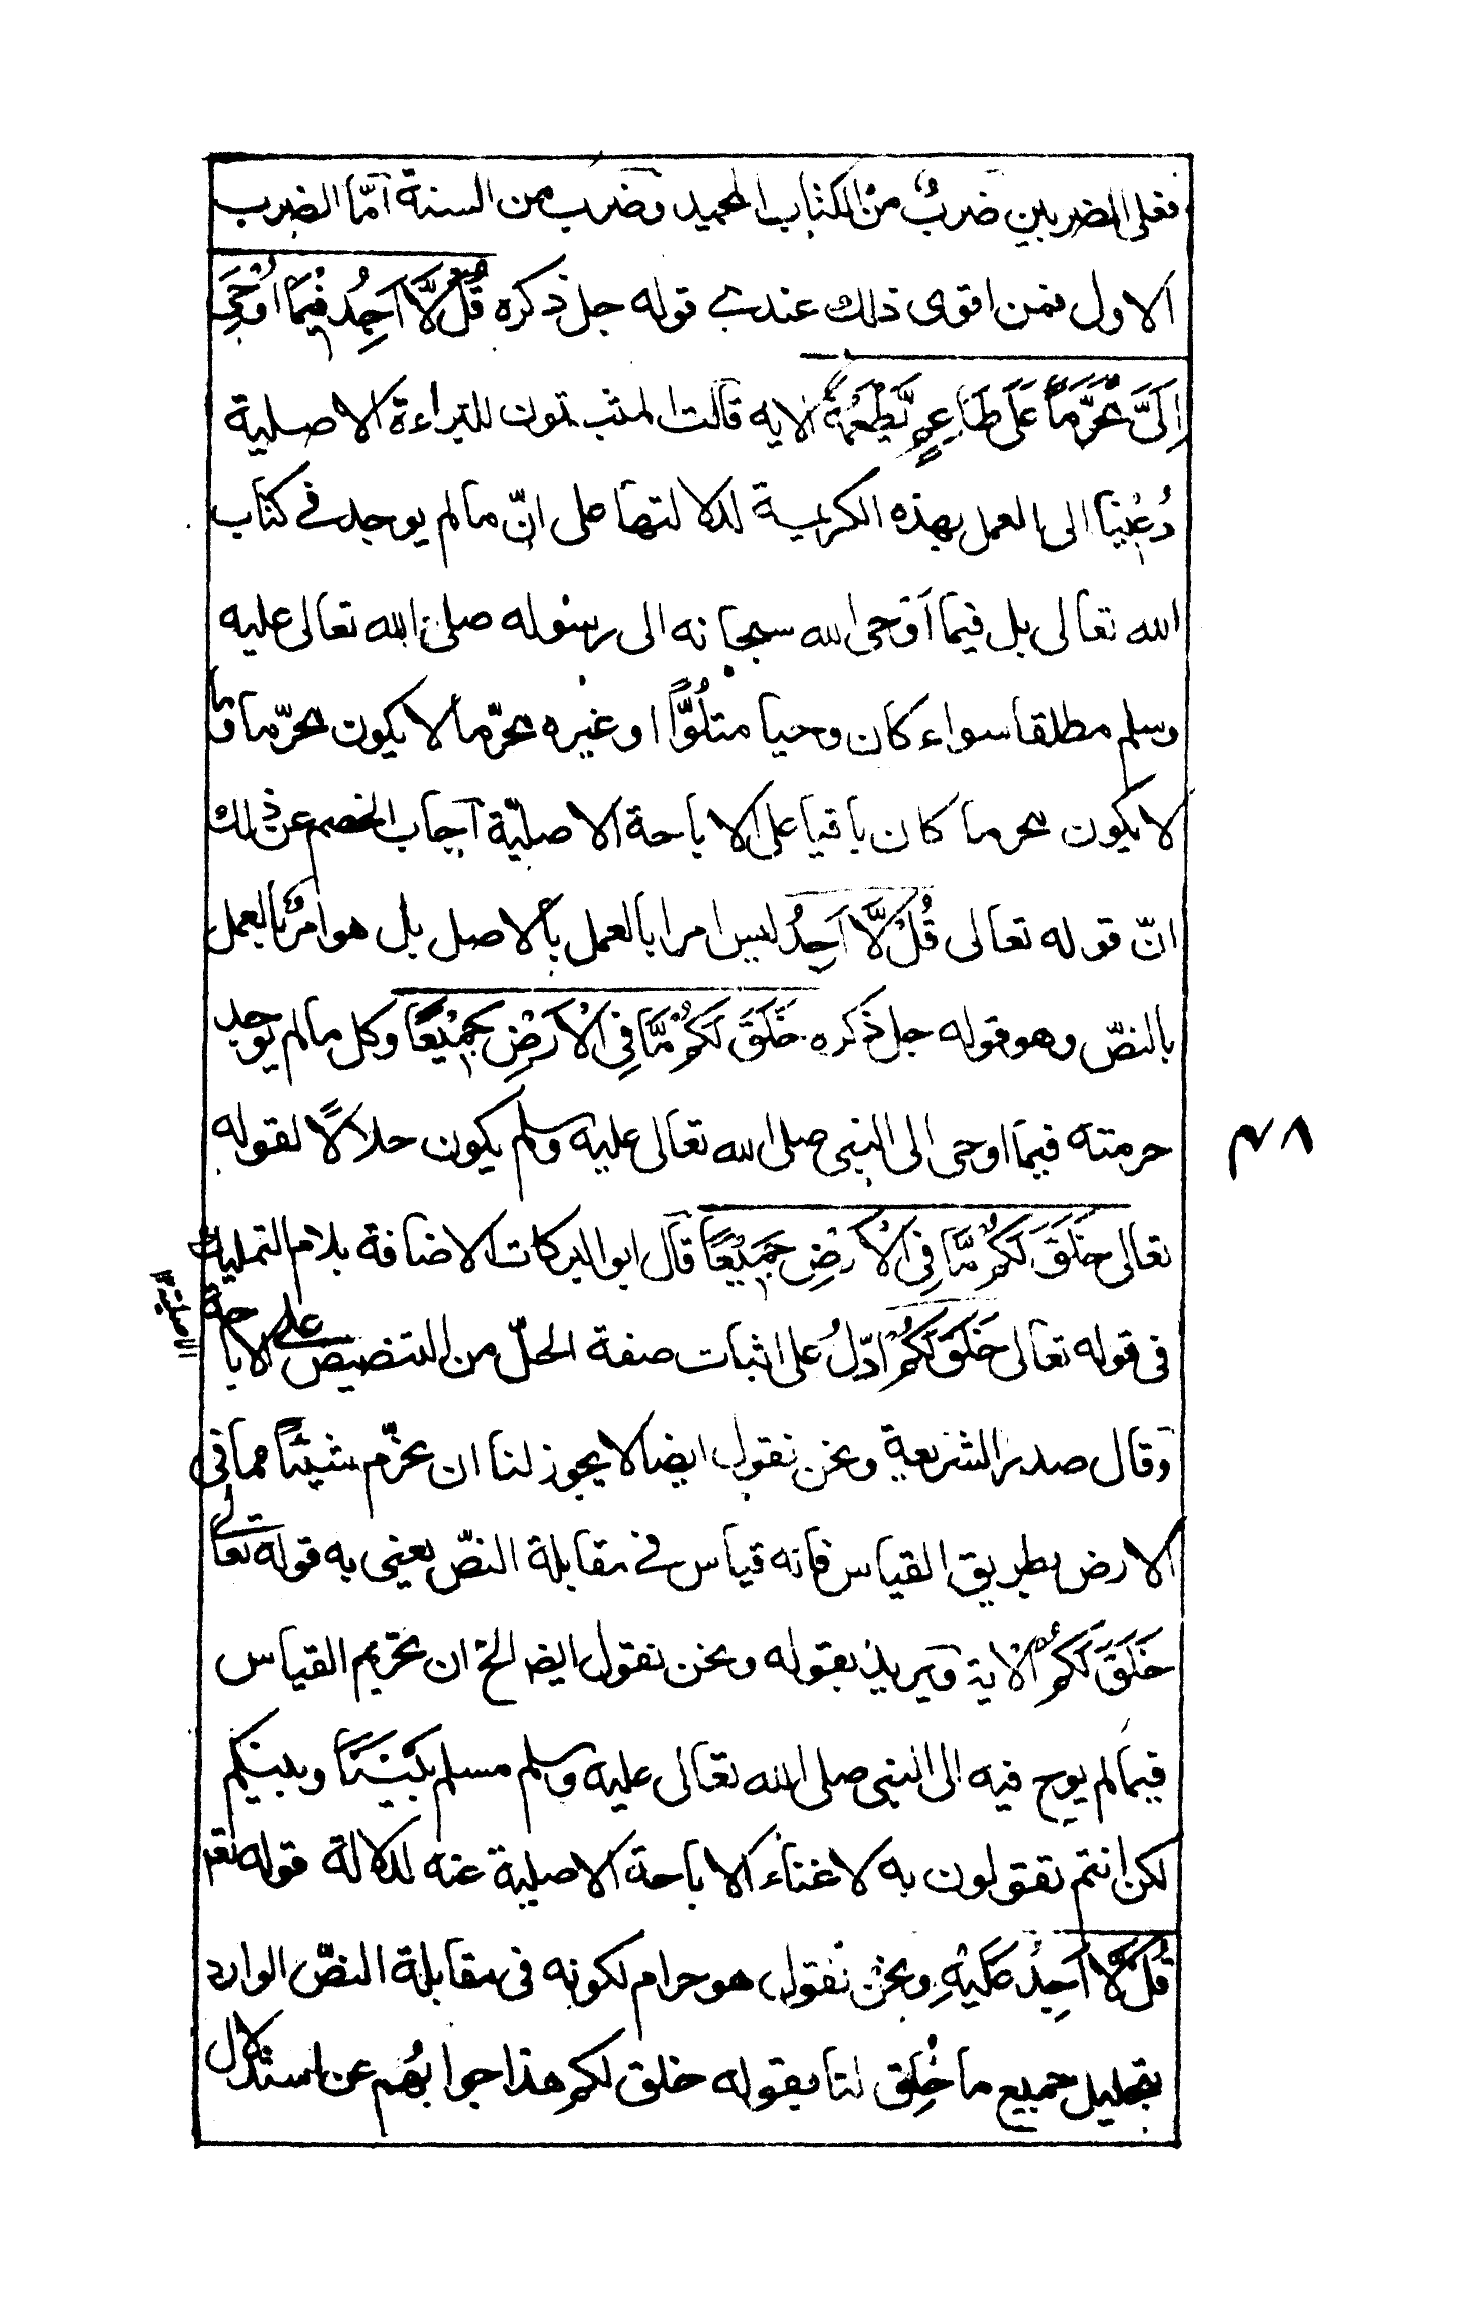 فعلى الضربين ضربٌ من الكتاب المجيد وضرب من السنة امّا الضرب
الاول فمن اقوى ذلك عندى قوله جل ذكره قُلْ لَّا اَجِدُ فِيْمَا اُوْحِيَ
اِلَيَّ مُحَرَّمًا عَلَى طَاعِمٍ يَّطْعَمُهٗ الايه قالت المثبتون للبراءة الاصلية
دُعْيْنا الى العمل بهذه الكريمة لدلالتها على انّ مالم يوجد فى كتاب
الله تعالى بل فيما اوحى الله سبحانه الى رسوله صلى الله تعالى عليه
وسلم مطلقا سواء كان وحيا متلُوًّا او غيره محرّما لا يكون محرّما وما
لا يكون محرما كان باقيا على الاباحة الاصليّة اجاب الخصم عن ذلك
انّ قوله تعالى قُلْ لَّا اَجِدُ ليس امرا بالعمل بالاصل بل هو امرٌ بالعمل
بالنصّ وهو قوله جل ذكره خَلَقَ لَكُمْ مَّا فِى الْاَرْضِ جَمِيْعًا وكل مالم يوجد
حرمته فيما اوحى الى النبى صلى الله تعالى عليه وسلم يكون حلالًا لقوله
تعالى خَلَقَ لَكُمْ مَّا فِى الْاَرْضِ جَمِيْعًا قال ابو البركات الاضافة بلام التمليك
فى قوله تعالى خَلَقَ لَكُمْ ادّلُ على اثبات صفة الحلّ من التنصيص على الاباحة
الاصلية ١٢
وقال صدر الشريعة ونحن نقول ايضا لا يجوز لنا ان نحرّم شيئًا مما فى
الارض بطريق القياس فانه قياس فى مقابلة النصّ يعنى به قوله تعالى
خَلَقَ لَكُمْ الاية ويريد بقوله ونحن نقول ايضا الخ ان تحريم القياس
فيما لم يوح فيه الى النبى صلى الله تعالى عليه وسلم مسلم بَيْنَنَا وبينكم
لكن انتم تقولون به لاغناء الاباحة الاصلية عنه لدلالة قوله تعم
قُلْ لَّا اَجِدُ عَلَيْهِ ونحن نقول هو حرام لكونه فى مقابلة النصّ الوارد
بتحليل جميع ما خُلِق لنا بقوله خلق لكم هذا جوابُهم عن استدلال
٤٨